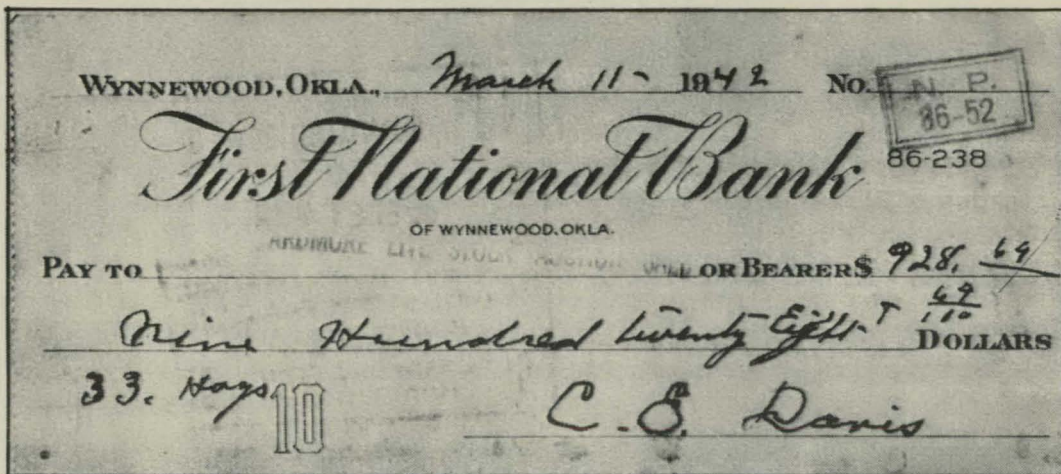 WYNNEWOOD, OKLA., March 11- 1942 No.
N. P.
86-52
First National Bank
86-238
OF WYNNEWOOD, OKLA.
ARDMORE LIVE STOCK AUCTION
PAY TO OR BEARER $ 928. 69
Nine Hundred twenty Eight 69/100 DOLLARS
33. Hogs 10
C. E. Davis